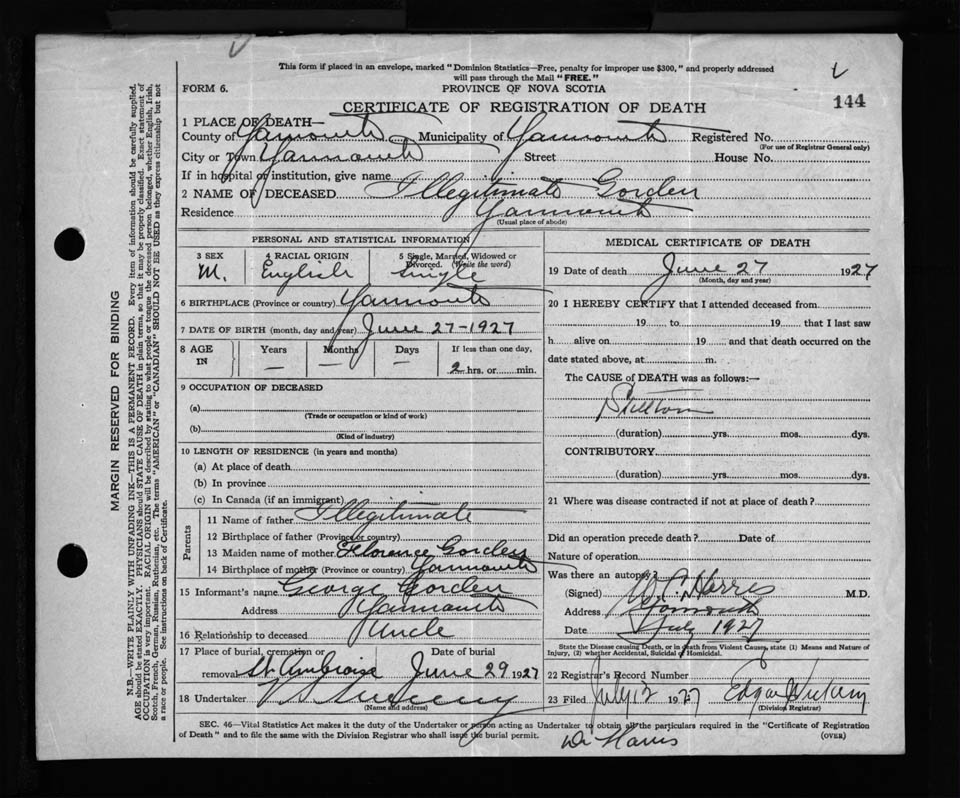 This form if placed in an envelope, marked "Dominion Statistics—Free, penalty for improper use $300," and properly addressed
will pass through the Mail "FREE."
FORM 6. PROVINCE OF NOVA SCOTIA
144
CERTIFICATE OF REGISTRATION OF DEATH
1 PLACE OF DEATH—
County of Yarmouth Municipality of Yarmouth Registered No.
(For use of Registrar General only)
City or Town Yarmouth Street House No.
If in hospital or institution, give name
2 NAME OF DECEASED Illegitimate Gorden
Residence Yarmouth
(Usual place of abode)
PERSONAL AND STATISTICAL INFORMATION
3 SEX 4 RACIAL ORIGIN 5 Single, Married, Widowed or Divorced. (Write the word)
M. English Single
6 BIRTHPLACE (Province or country) Yarmouth
7 DATE OF BIRTH (month, day and year) June 27-1927
8 AGE IN Years Months Days If less than one day,
— — — 2 hrs. or min.
9 OCCUPATION OF DECEASED
(a)
(Trade or occupation or kind of work)
(b)
(Kind of industry)
10 LENGTH OF RESIDENCE (in years and months)
(a) At place of death
(b) In province
(c) In Canada (if an immigrant)
Parents
11 Name of father Illegitimate
12 Birthplace of father (Province or country)
13 Maiden name of mother Florence Gorden
14 Birthplace of mother (Province or country) Yarmouth
15 Informant's name George Gorden
Address Yarmouth
16 Relationship to deceased Uncle
17 Place of burial, cremation or removal Date of burial
St. Ambroise June 29 1927
18 Undertaker
(Name and address)
MEDICAL CERTIFICATE OF DEATH
19 Date of death June 27 1927
(Month, day and year)
20 I HEREBY CERTIFY that I attended deceased from
19 to 19 that I last saw
h alive on 19 and that death occurred on the
date stated above, at m.
The CAUSE of DEATH was as follows:—
(duration) yrs. mos. dys.
CONTRIBUTORY
(duration) yrs. mos. dys.
21 Where was disease contracted if not at place of death?
Did an operation precede death? Date of
Nature of operation
Was there an autopsy?
(Signed) Harris M.D.
Address Yarmouth
Date July 1927
State the Disease causing Death, or in death from Violent Causes, state (1) Means and Nature of
Injury, (2) whether Accidental, Suicidal or Homicidal.
22 Registrar's Record Number
23 Filed July 12 1927 Edgar
(Division Registrar)
SEC. 46—Vital Statistics Act makes it the duty of the Undertaker or person acting as Undertaker to obtain all the particulars required in the "Certificate of Registration
of Death" and to file the same with the Division Registrar who shall issue the burial permit. (OVER)
Dr Harris
MARGIN RESERVED FOR BINDING
N.B.—WRITE PLAINLY WITH UNFADING INK—THIS IS A PERMANENT RECORD. Every item of information should be carefully supplied.
AGE should be stated EXACTLY. PHYSICIANS should STATE CAUSE OF DEATH in plain terms, so that it may be properly classified. Exact statement of
OCCUPATION is very important. RACIAL ORIGIN will be described by stating to what people or tongue the deceased person belonged, whether English, Irish,
Scotch, French, German, Russian, Ruthenian, etc. The terms "AMERICAN" or "CANADIAN" SHOULD NOT BE USED as they express citizenship but not
a race or people. See instructions on back of Certificate.